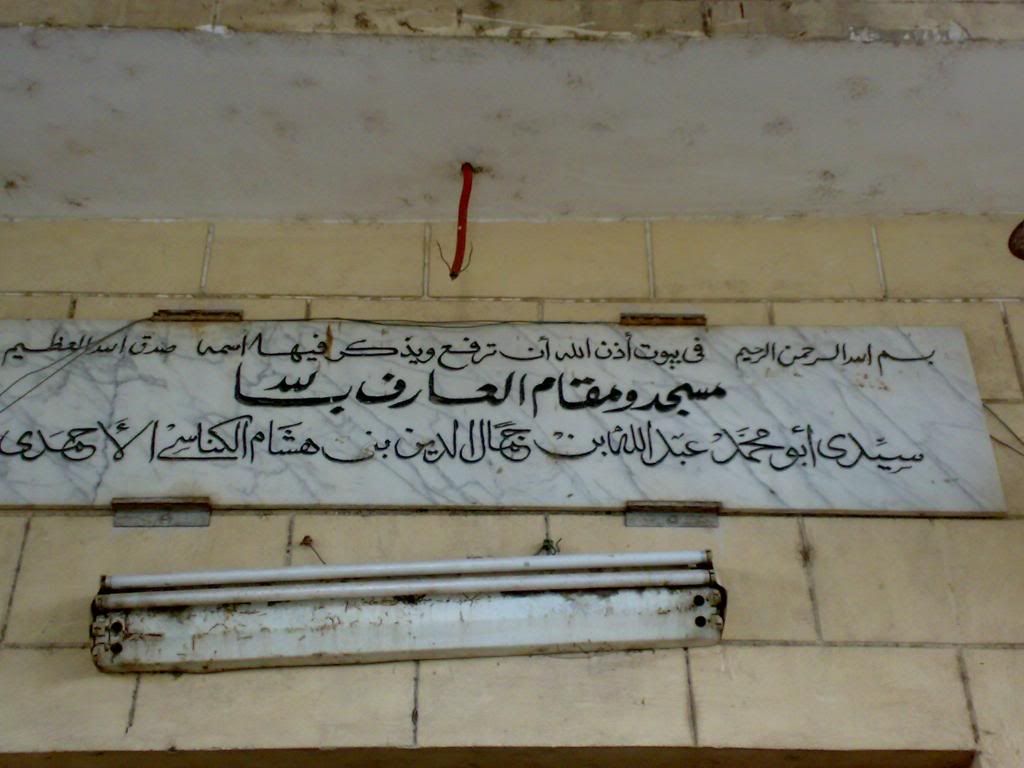 بسم الله الرحمن الرحيم في بيوت أذن الله أن ترفع ويذكر فيها اسمه صدق الله العظيم
مسجد ومقام العارف بالله
سيدى أبو محمد عبد الله بن جمال الدين بن هشام الكناسي الأحمدى